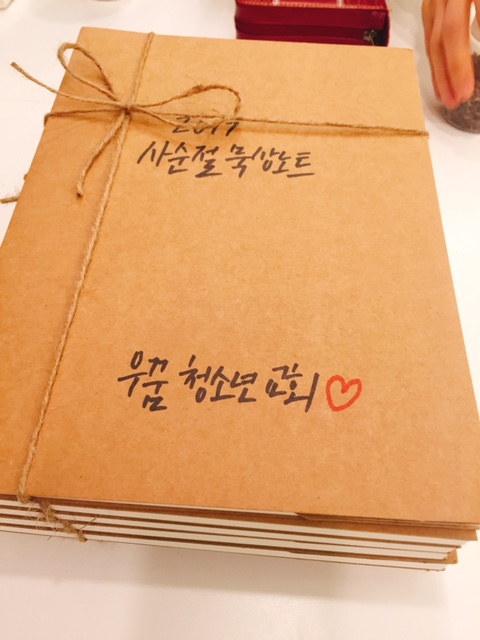 2019
사순절 묵상노트
우꿈 청소년 교회